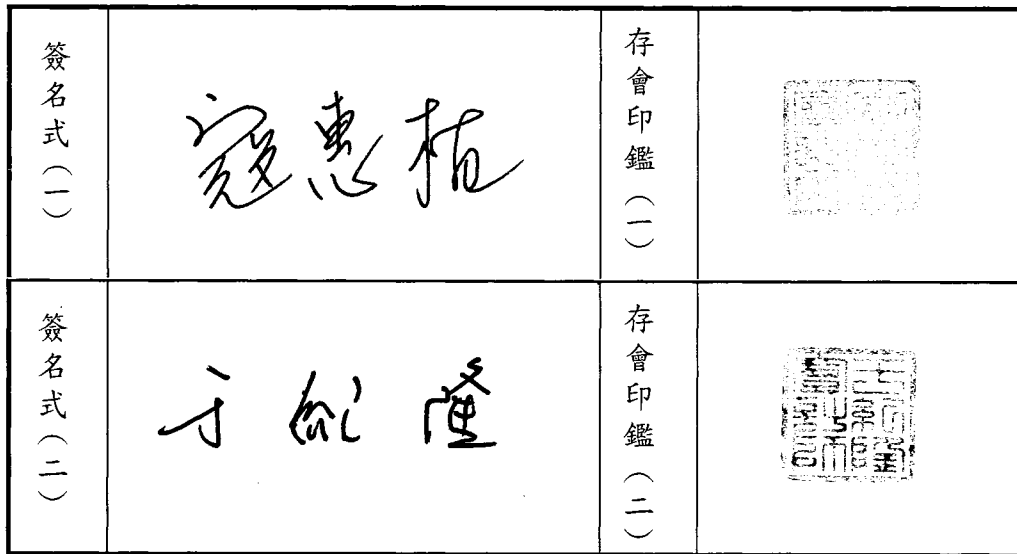 簽名式(一)
寇惠植
存會印鑑(一)
簽名式(二)
于紀隆
存會印鑑(二)